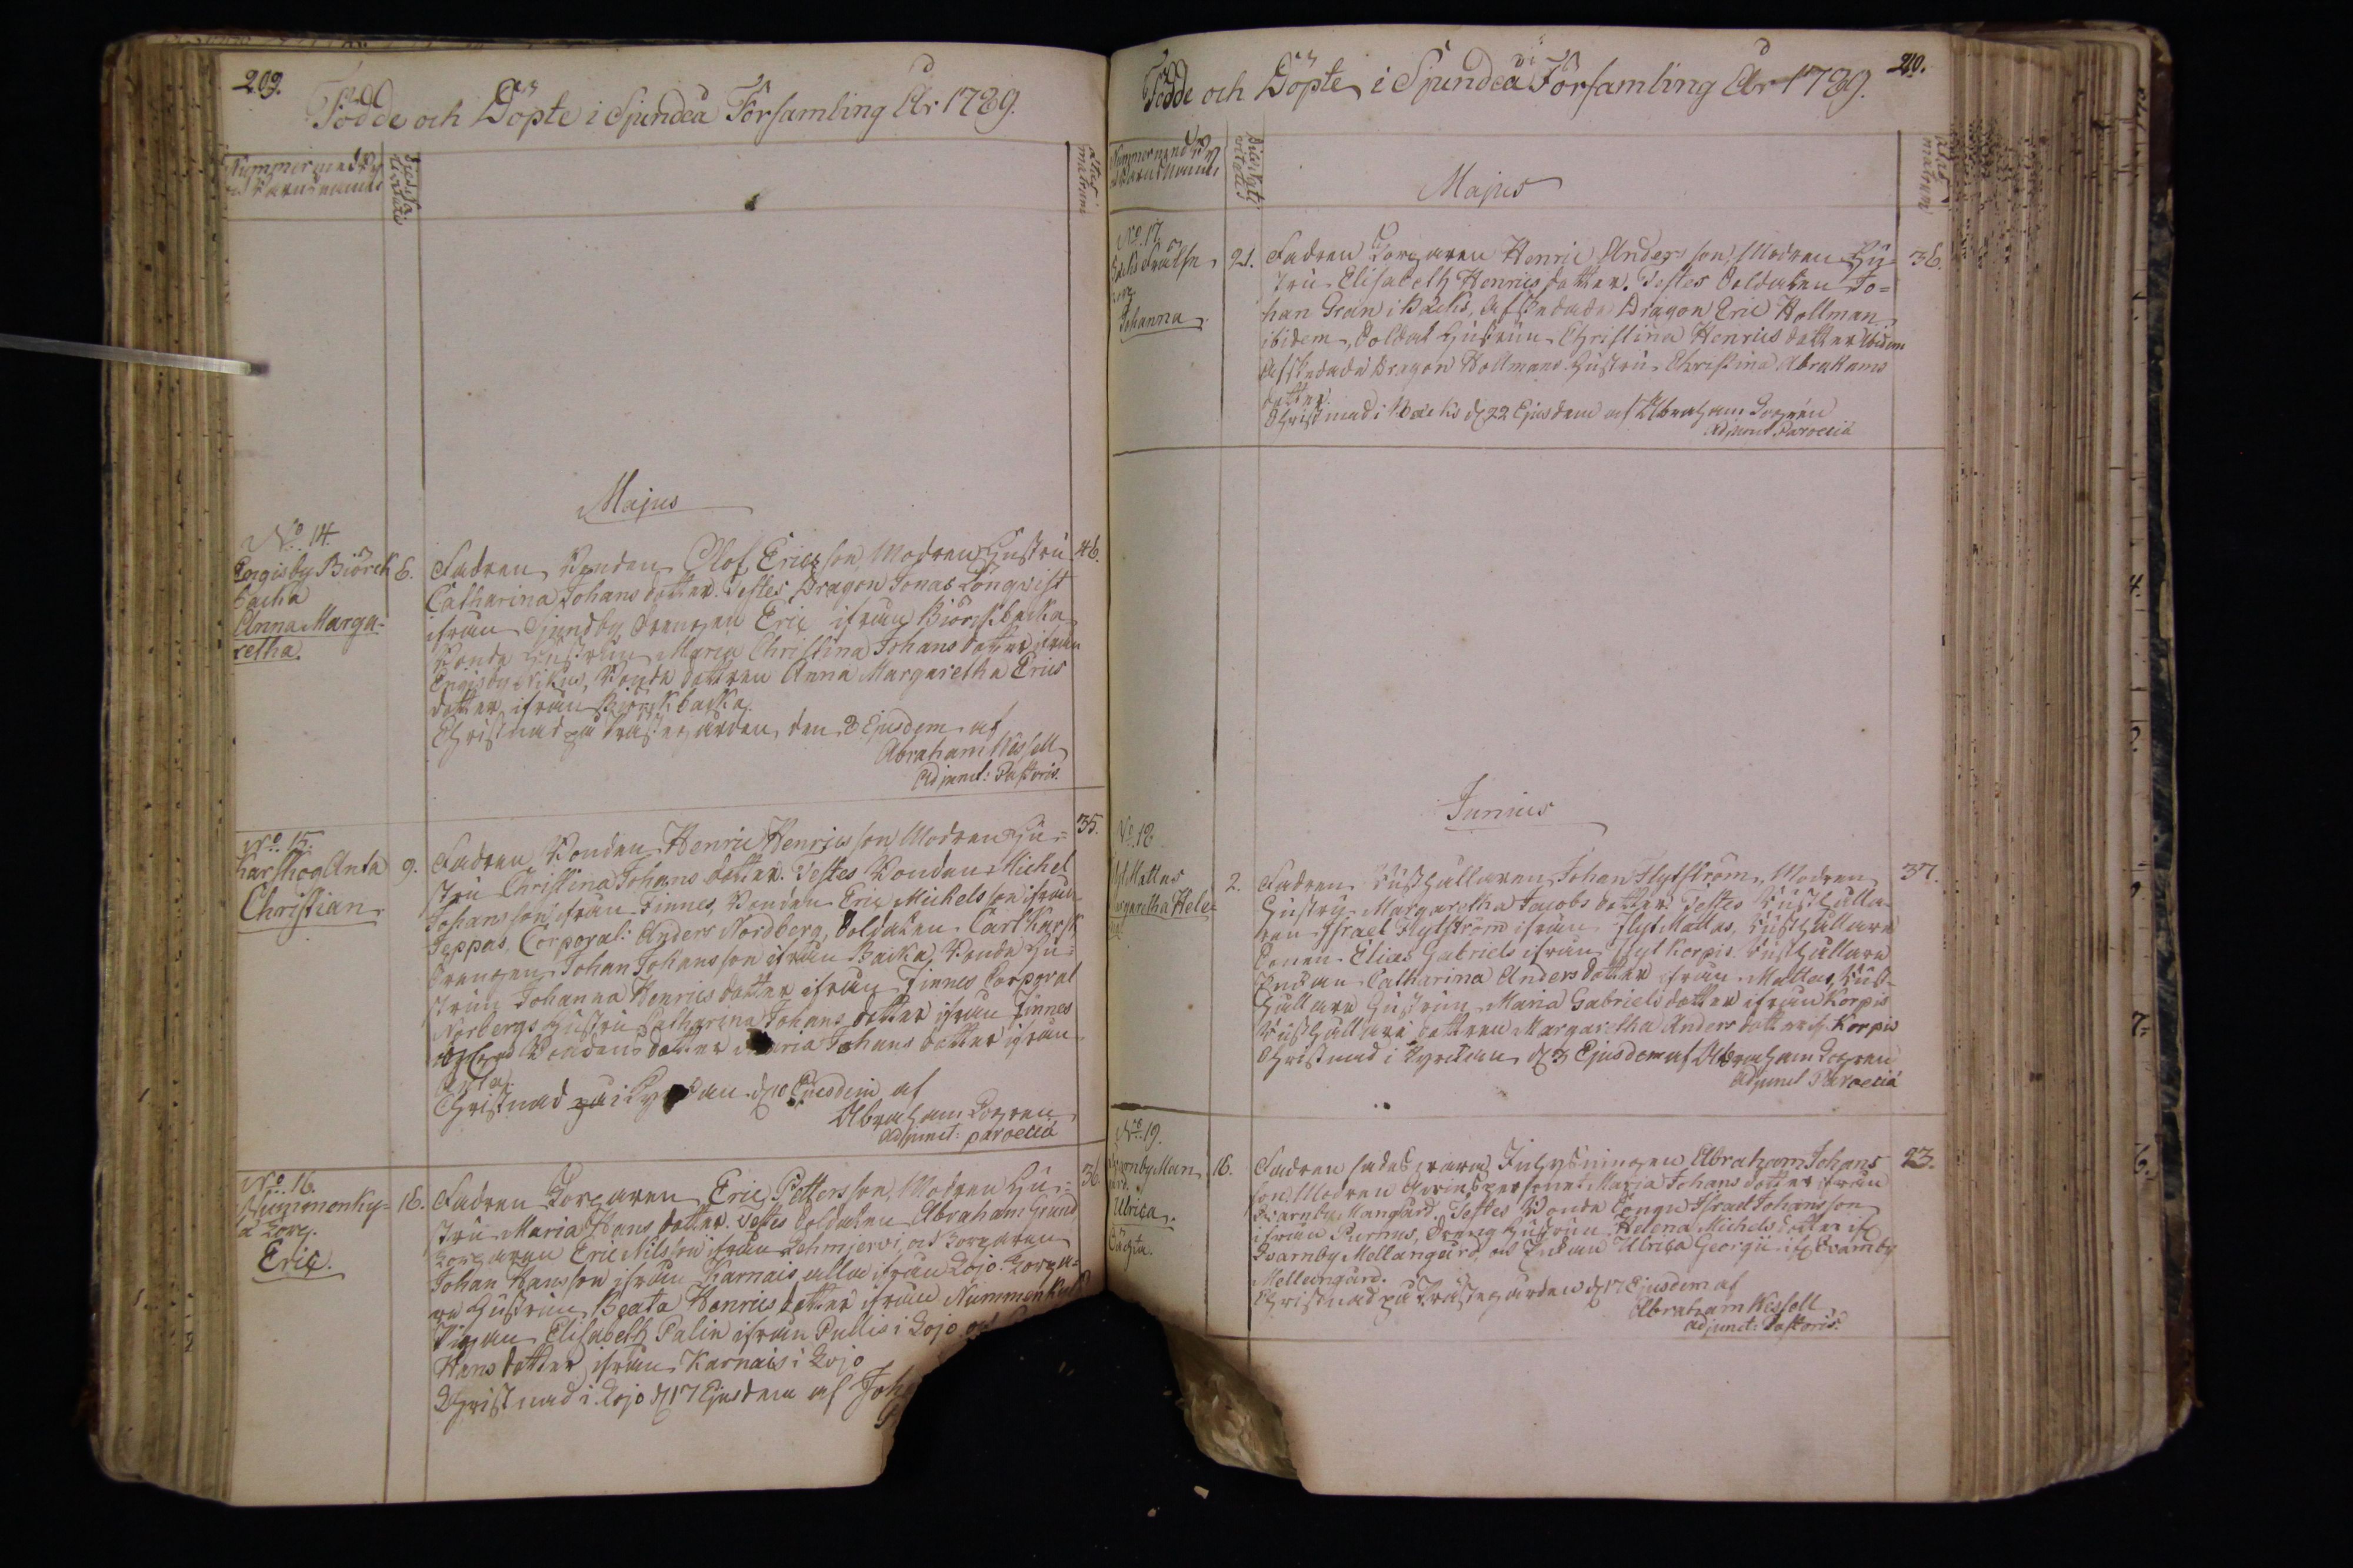 209.
Födde och Döpte i Sjundeå Församling År 1789.
Nummer med By
och Barnsnamn
Ætas
matrum
Majus
No. 14.
Engisby Biörck
backa
Anna Marga-
retha.
6.
Fadren Bonden Olof Ericsson, Modren Hustru
Catharina Johans dotter. Testes Dragon Jonas Lönqvist
ifrån Sjundby, Drengen Eric ifrån Biörckbacka
Bonde Hustrun Maria Christina Johans dotter ifrån
Engisby Nikus, Bonde dottren Anna Margaretha Erics
dotter ifrån Biörckbacka.
Christnad på Prästegården den 8 Ejusdem af
Abraham Kessell
Adjunct: Pastoris.
46.
No. 15.
Karskog Anta
Christian
9.
Fadren Bonden Henric Henricsson, Modren Hu-
stru Christina Johans dotter. Testes Bonden Michel
Johansson ifrån Finnes, Bonden Eric Michelsson ifrån
Jeppas, Corporal: Anders Nordberg, Soldaten Carl Karsk
Drengen Johan Johansson ifrån Backa, Bonde Hu-
strun Johanna Henrics dotter ifrån Finnes Corporal
Norbergs Hustru Catharina Johans dotter ifrån Finnes
Bondens dotter Maria Johans dotter ifrån
Anta.
Christnad i Kyrckan d 10 Ejusdem af
Abraham Logren
Adjunct: paroeciæ
35.
No. 16.
Nummenky-
lä Torp.
Eric.
16.
Fadren Torparen Eric Pettersson, Modren Hu-
stru Maria Hans dotter. Testes Soldaten Abraham Grund
Torparen Eric Nilsson ifrån Lehmjervi, och Torparen
Johan Hansson ifrån Karnais alla ifrån Lojo. Torpa-
re Hustrun Beata Henrics dotter ifrån Nummenkylä
Pigan Elisabeth Palin ifrån Pullis i Lojo och
Hans dotter ifrån Karnais i Lojo
Christnad i Lojo d 17 Ejusdem af Joh
36.
210.
Födde och Döpte i Sjundeå Församling År 1789.
Nummer med By
och Barnsnamn
Ætas
matrum
Majus
No. 17.
Bäcks
Torp
Johanna
21.
Fadren Torparen Henric Andersson, Modren Hu-
stru Elisabeth Henrics dotter. Testes Soldaten Jo-
han Gran i Bäcks, Afskedade Dragon Eric Hollman
ibidem, Soldat Hustrun Christina Henrics dotter ibidem
Afskedade Dragon Hollmans Hustru Christina Abrahams
dotter.
Christnad i Bäcks d 22 Ejusdem af Abraham Logren
Adjunct Paroeciæ
36.
Junius
No. 18
Flyt Mattas
Margaretha Hele-
na
2.
Fadren Rusthållaren Johan Flytström, Modren
Hustru Margaretha Jacobs dotter. Testes Rusthålla-
ren Israel Flytström ifrån Flyt Mattas, Rusthållare
Sonen Elias Gabriels ifrån Flyt Korpis. Rusthållare
Enkan Catharina Anders dotter ifrån Mattas, Rust-
hållare Hustrun Maria Gabriels dotter ifrån Korpis
Rusthållare dottren Margaretha Anders dotter if Korpis
Christnad i Kyrckan d 3 Ejusdem af Abraham Logren
Adjunct Paroeciæ
37.
No. 19.
Svarnby Man
gård.
Ulrica.
Oägta.
16.
Fadren sades vara Inhysningen Abraham Johans-
son, Modren Qvinspersonet Maria Johans dotter ifrån
Svarnby Mangård. Testes Bonde Sonen Israel Johansson
ifrån Purnus, Dreng Hustrun Helena Michels dotter if
Svarnby Mellangård, och Enkan Ulrica Georgii if Svarnby
Mellangård.
Christnad på Prästegården d 17 Ejusdem af
Abraham Kessell
Adjunct: Pastoris.
23.